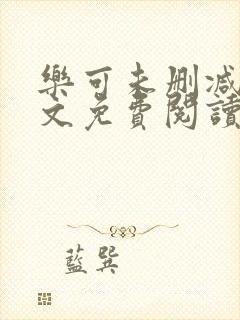 樂可未删减
文免費閱讀
藍巽